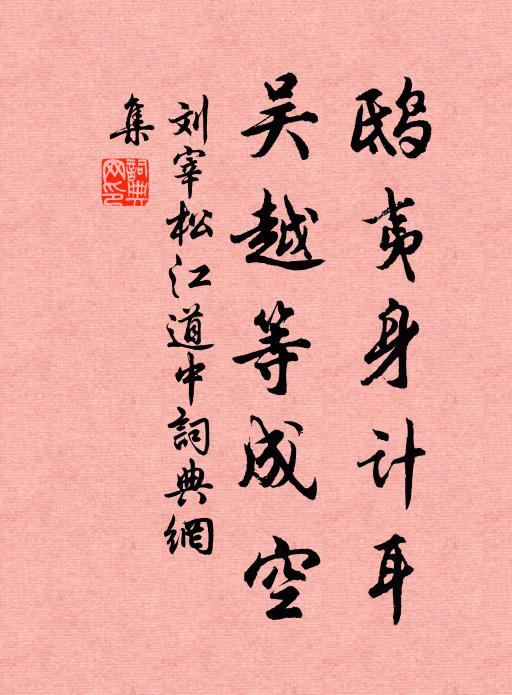 鸱夷身计耳
吴越等成空
刘宰松江道中詞典網
集
詞典网印